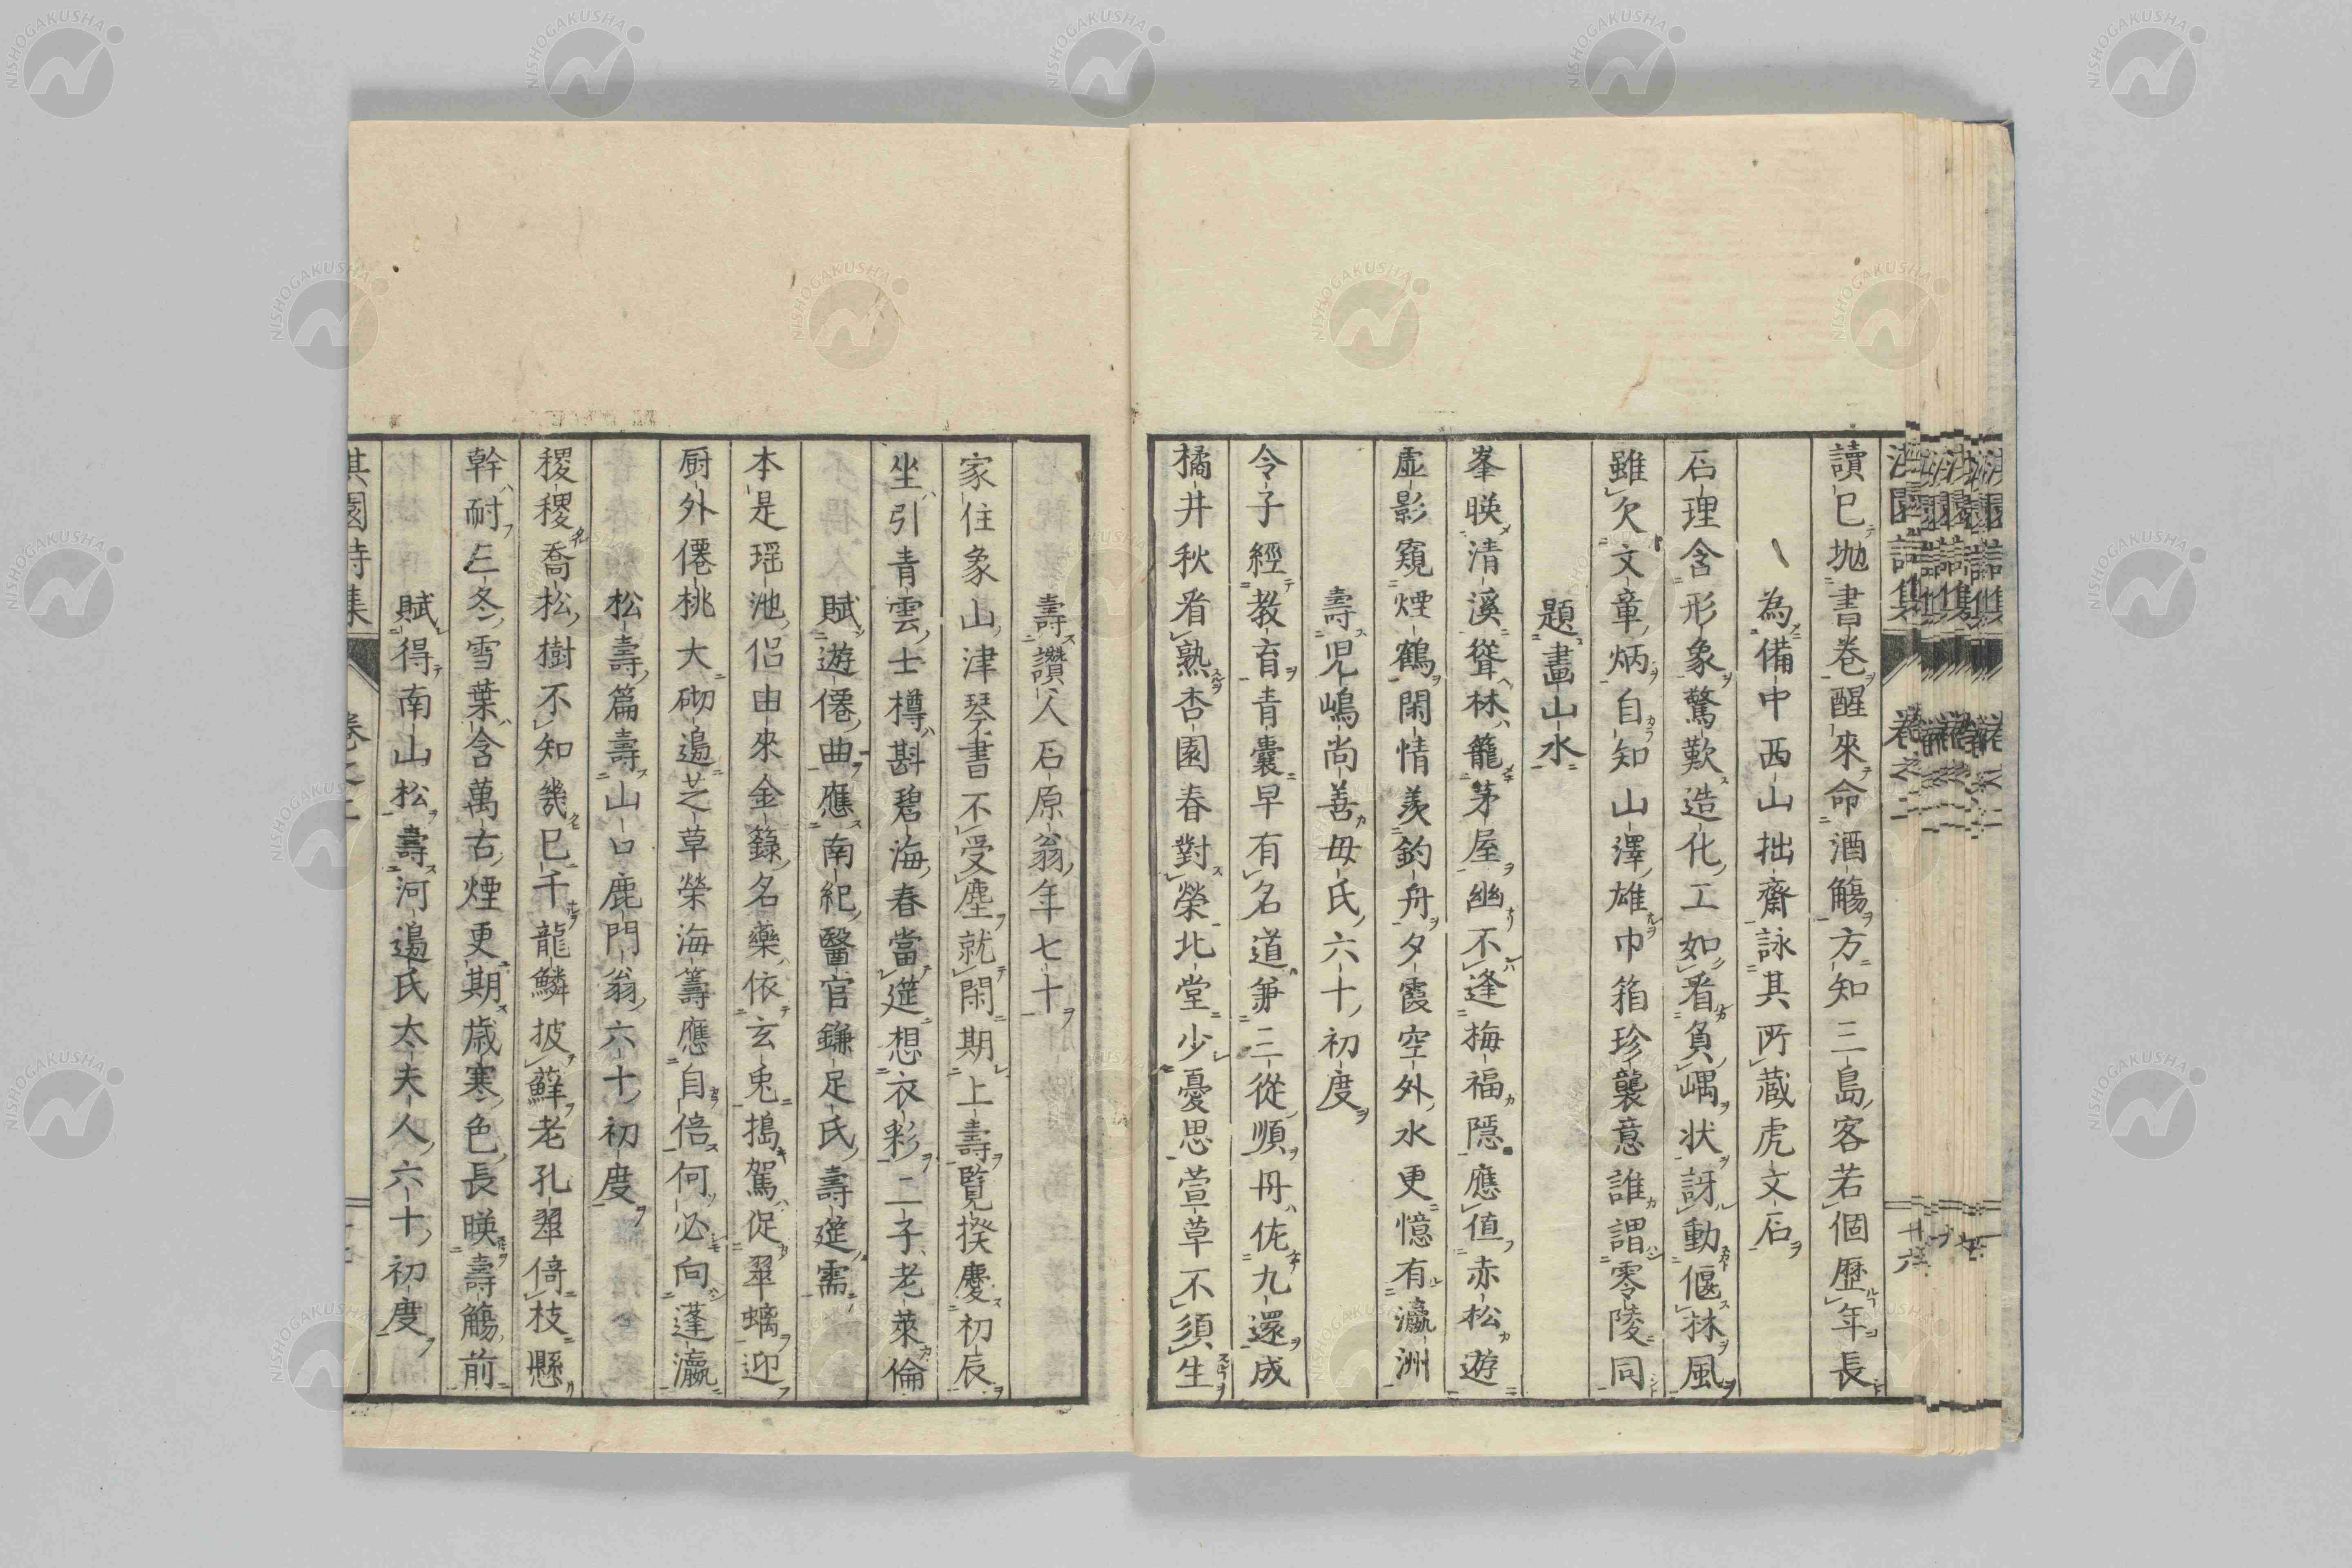 讀已拋書卷醒來命酒觴方知三島客若個歷年長
為備中西山拙齋詠其所藏虎文石
石理含形象驚歎造化工如看負嵎状訝動偃林風
雖欠文章炳自知山澤雄巾箱珍襲意誰謂零陵同
題畫山水
峯暎清溪聳林籠茅屋幽不逢梅福隱應值赤松遊
虛影窺煙鶴閑情羨釣舟夕霞空外水更憶有瀛洲
壽児嶋尚善母氏六十初度
令子經教育青囊早有名道兼三從順丹佐九還成
橘井秋看熟杏園春對榮北堂少憂思萱草不須生
壽讚人石原翁年七十
家住象山津琴書不受塵就閑期上壽覽揆慶初辰
坐引青雲士樽斟碧海春當筵想衣彩二子老萊倫
賦遊僊曲應南紀醫官鎌足氏壽筵需
本是瑶池侶由來金籙名藥依玄兎搗駕促翠螭迎
厨外僊桃大砌邉芝草榮海籌應自倍何必向蓬瀛
松壽篇壽山口鹿門翁六十初度
稷稷喬松樹不知幾已千龍鱗披蘚老孔翠倚枝懸
幹耐三冬雪葉含萬古煙更期歳寒色長暎壽觴前
賦得南山松壽河邉氏太夫人六十初度
淇園詩集 卷之二
NISHOGAKUSHA